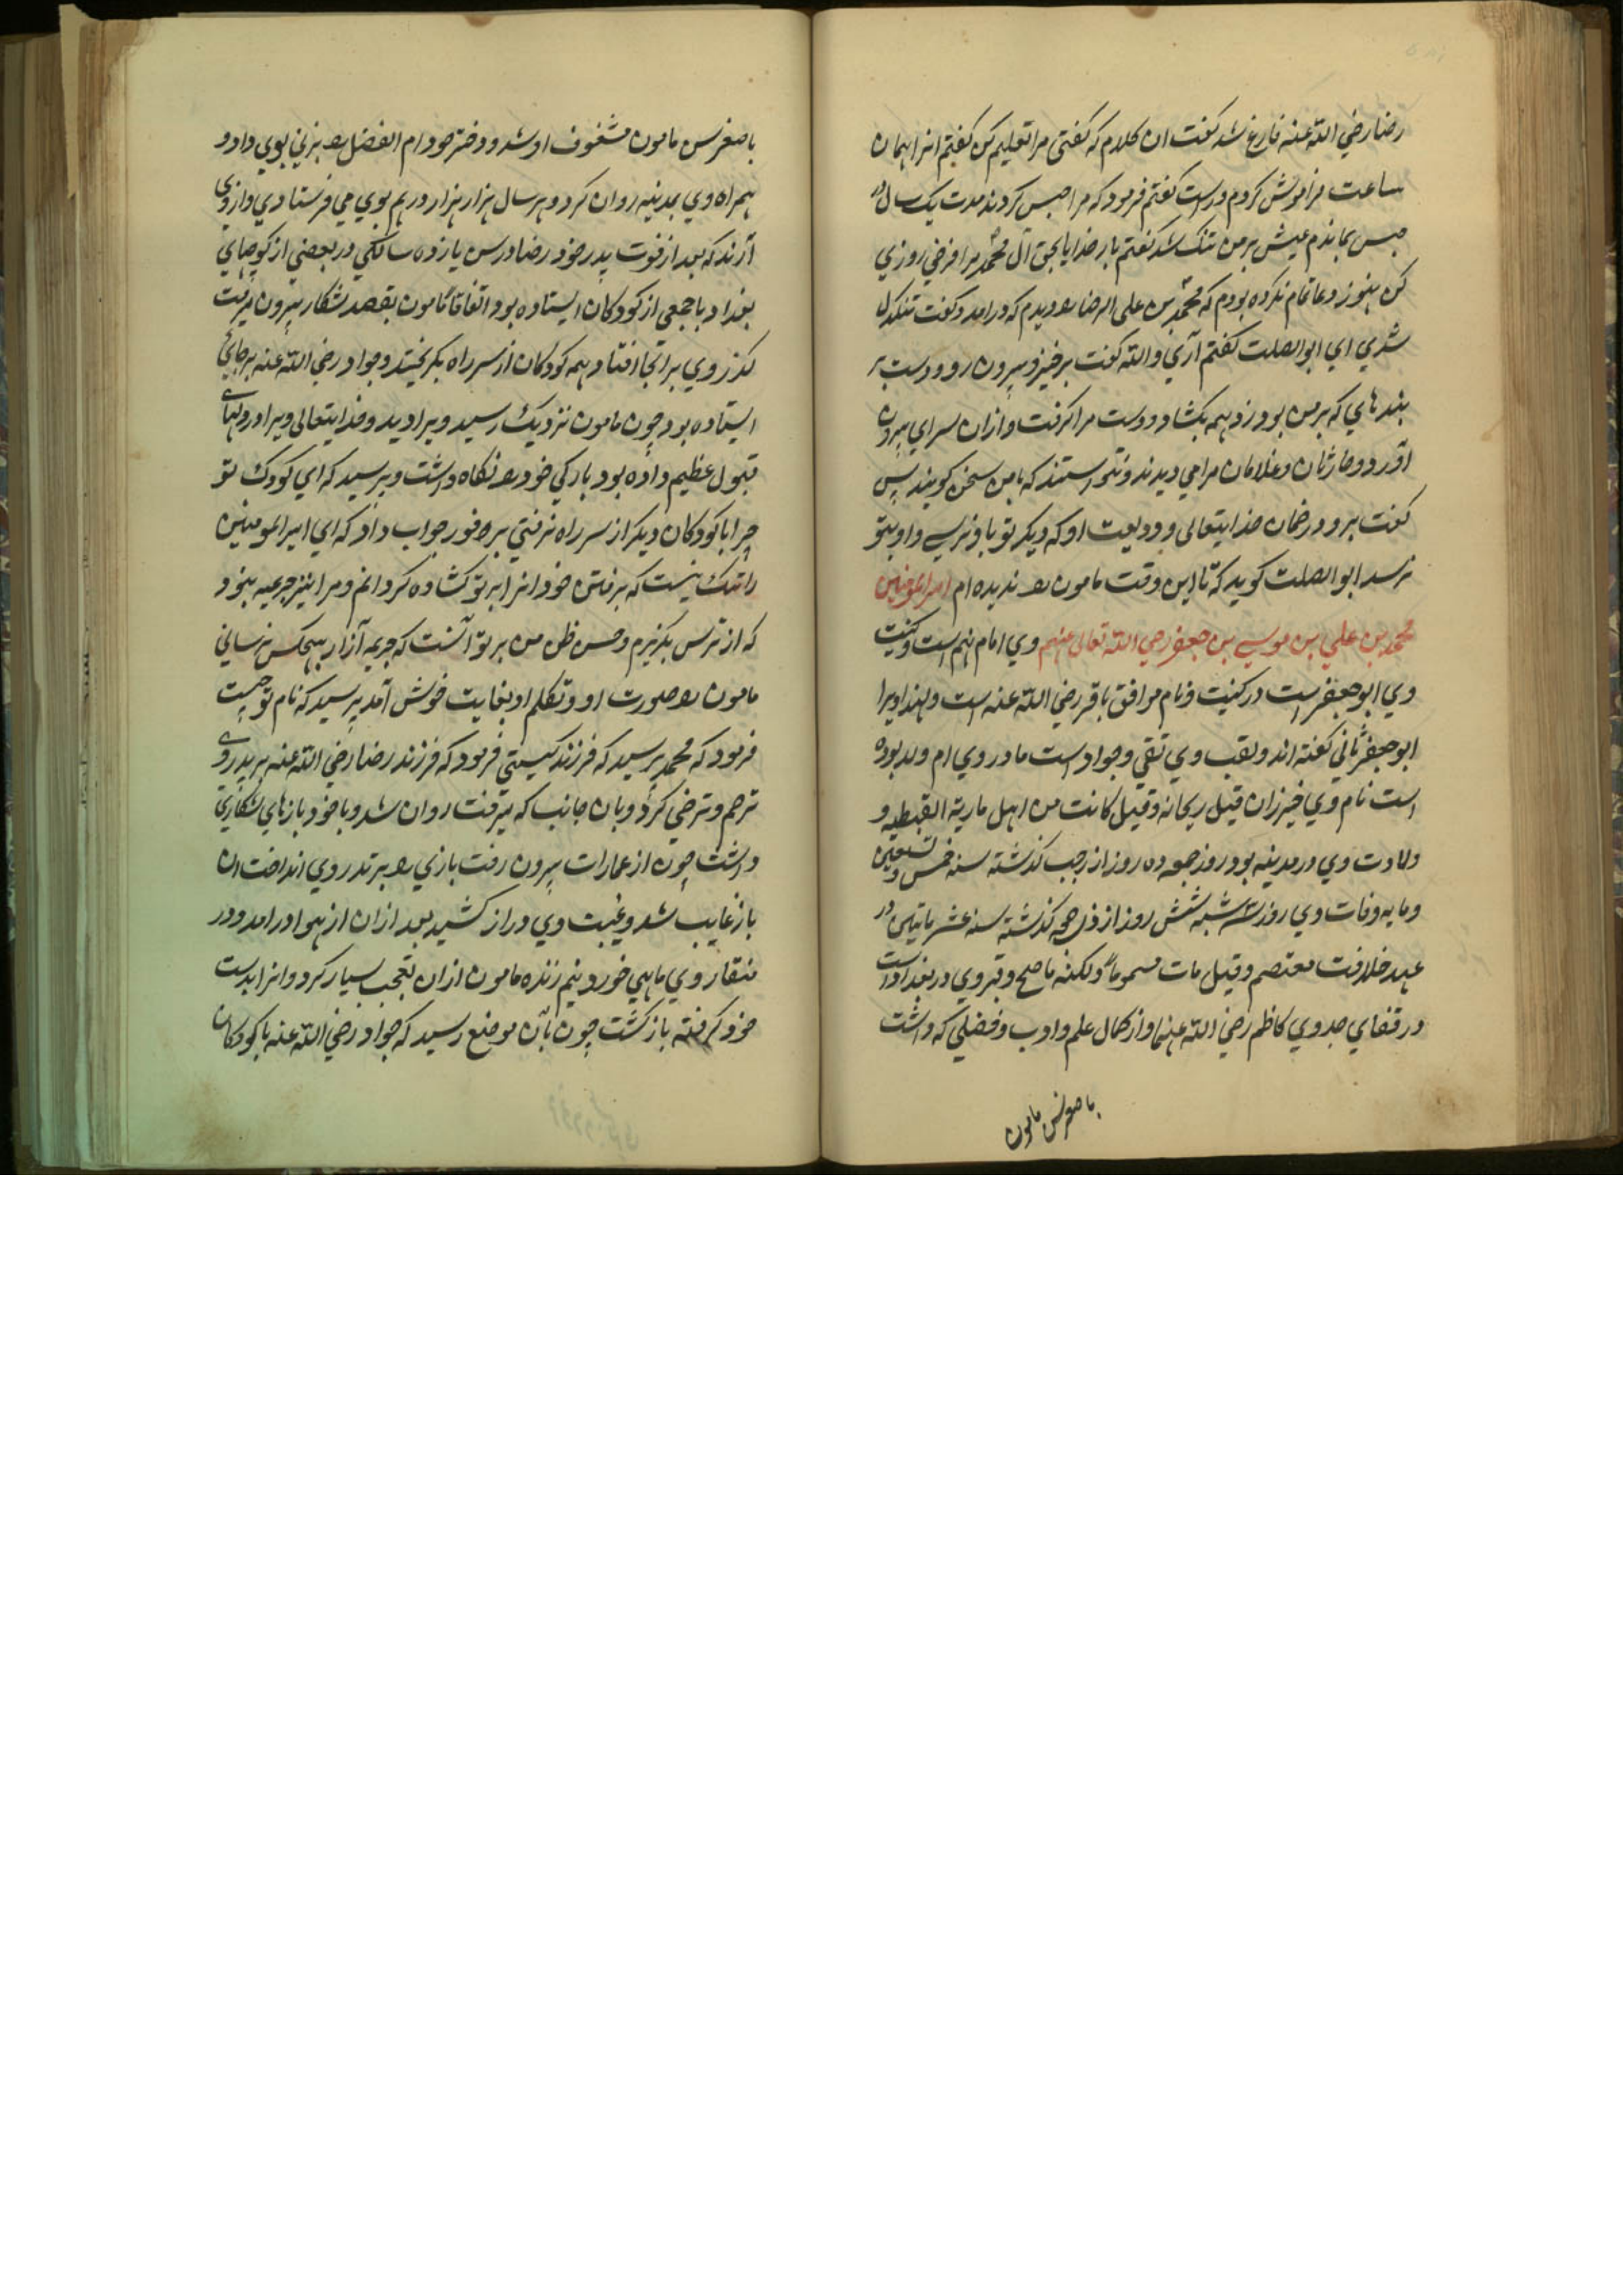 رضا رضي الله عنه فارغ شد گفت ان کلام که گفتی مرا تعلیم کن گفتم انرا همان
ساعت فراموش کردم و راست گفتم فرمود که مرا حبس کردند مدت یک سال در
حبس بماندم عیش بر من تنک شد گفتم بار خدایا بحق آل محمد مرا فرجي روزي
کن هنوز دعا تمام نکرده بودم که محمد بن علی الرضا را دیدم که درامد و گفت تنکدل
شدي اي ابو الصلت گفتم آري والله گفت برخیز و بیرون رو و دست بر
بندهاي که بر من بود زد همه بکشاد و دست مرا گرفت و ازان سراي بیرون
آورد و حارثان و غلامان مرا مي دیدند و نتوانستند که با من سخن گویند پس
گفت برو در ضمان خدایتعالی و ودیعت او که دیگر تو باو نرسي و او بتو
نرسد ابو الصلت گوید که تا این وقت مامون را ندیده ام امیر المومنین
محمد بن علي بن موسي بن جعفر رضي الله تعالی عنهم وي امام نهم است و کنیت
وي ابو جعفر است در کنیت و نام موافق باقر رضي الله عنه است و لهذا ویرا
ابو جعفر ثاني گفته اند و لقب وي تقي و جواد است مادر وي ام ولد بوده
است نام وي خیزران و قیل ریحانه و قیل کانت من اهل ماریة القبطیه و
ولادت وي در مدینه بود روز جمعه ده روز از رجب گذشته سنه خمس و تسعین
و مایه وفات وي روز سه شنبه شش روز از ذي حجه گذشته سنه عشر ماتین در
عهد خلافت معتصم و قیل مات مسموما و لکنه ما صح و قبر وي در بغداد است
در قفاي جد وي کاظم رضي الله عنهما و از کمال علم و ادب و فضلي که داشت
با صغر سن مامون
با صغر سن مامون مشغوف او شد و دختر خود ام الفضل را بزني بوي داد و
همراه وي بمدینه روان کرد و هر سال هزار هزار درهم بوي مي فرستادي و از وي
آرند که بعد از فوت پدر خود رضا در سن یازده سالکي در بعضي از کوچهاي
بغداد با جمعی از کودکان ایستاده بود اتفاقا مامون بقصد شکار بیرون میرفت
گذر وي برانجا افتاد همه کودکان از سر راه بگریختند و جواد رضي الله عنه بر جائی
ایستاده بود چون مامون نزدیک رسید ویرا دید و خدایتعالی ویرا در دلهای
قبول عظیم داده بود بارگي خود را نگاه داشت و پرسید که اي کودک تو
چرا با کودکان دیگر از سر راه نرفتي بر فور جواب داد که اي امیر المومنین
راه تنک نیست که برفتن خود انرا بر تو کشاده گردانم و مرا نیز جریمه نبود
که از ترس بگریزم و حسن ظن من بر تو آنست که بي جریمه آزار بهیچکس نرساني
مامون را صورت او و تکلم او بغایت خوش آمد پرسید که نام تو چیست
فرمود که محمد پرسید که فرزند کیستي فرمود که فرزند رضا رضي الله عنه بر پدر وي
ترحم و ترضي کرد و بان جانب که میرفت روان شد و با خود بازهاي شکاري
داشت چون از عمارات بیرون رفت بازي را بر تدروي انداخت ان
باز غایب شد و غیبت وي دراز کشید بعد ازان از هوا درامد و در
منقار وي ماهي خورد نیم زنده مامون ازان تعجب بسیار کرد و انرا بدست
خود گرفته بازگشت چون بان موضع رسید که جواد رضي الله عنه با کودکان